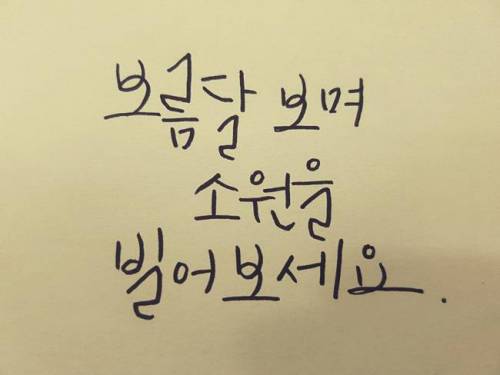 보름달 보며
소원을
빌어보세요.